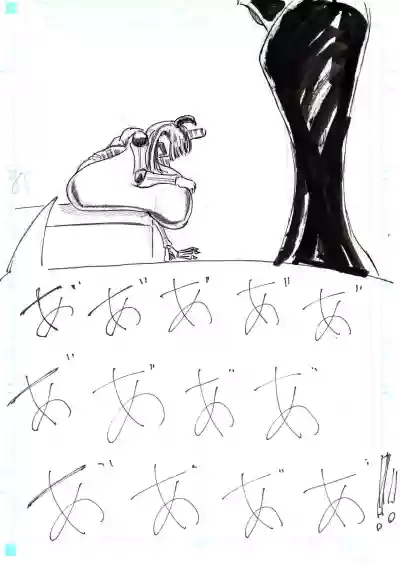 あ゛あ゛あ゛あ゛あ゛
あ゛あ゛あ゛あ゛
あ゛あ゛あ゛あ゛!!